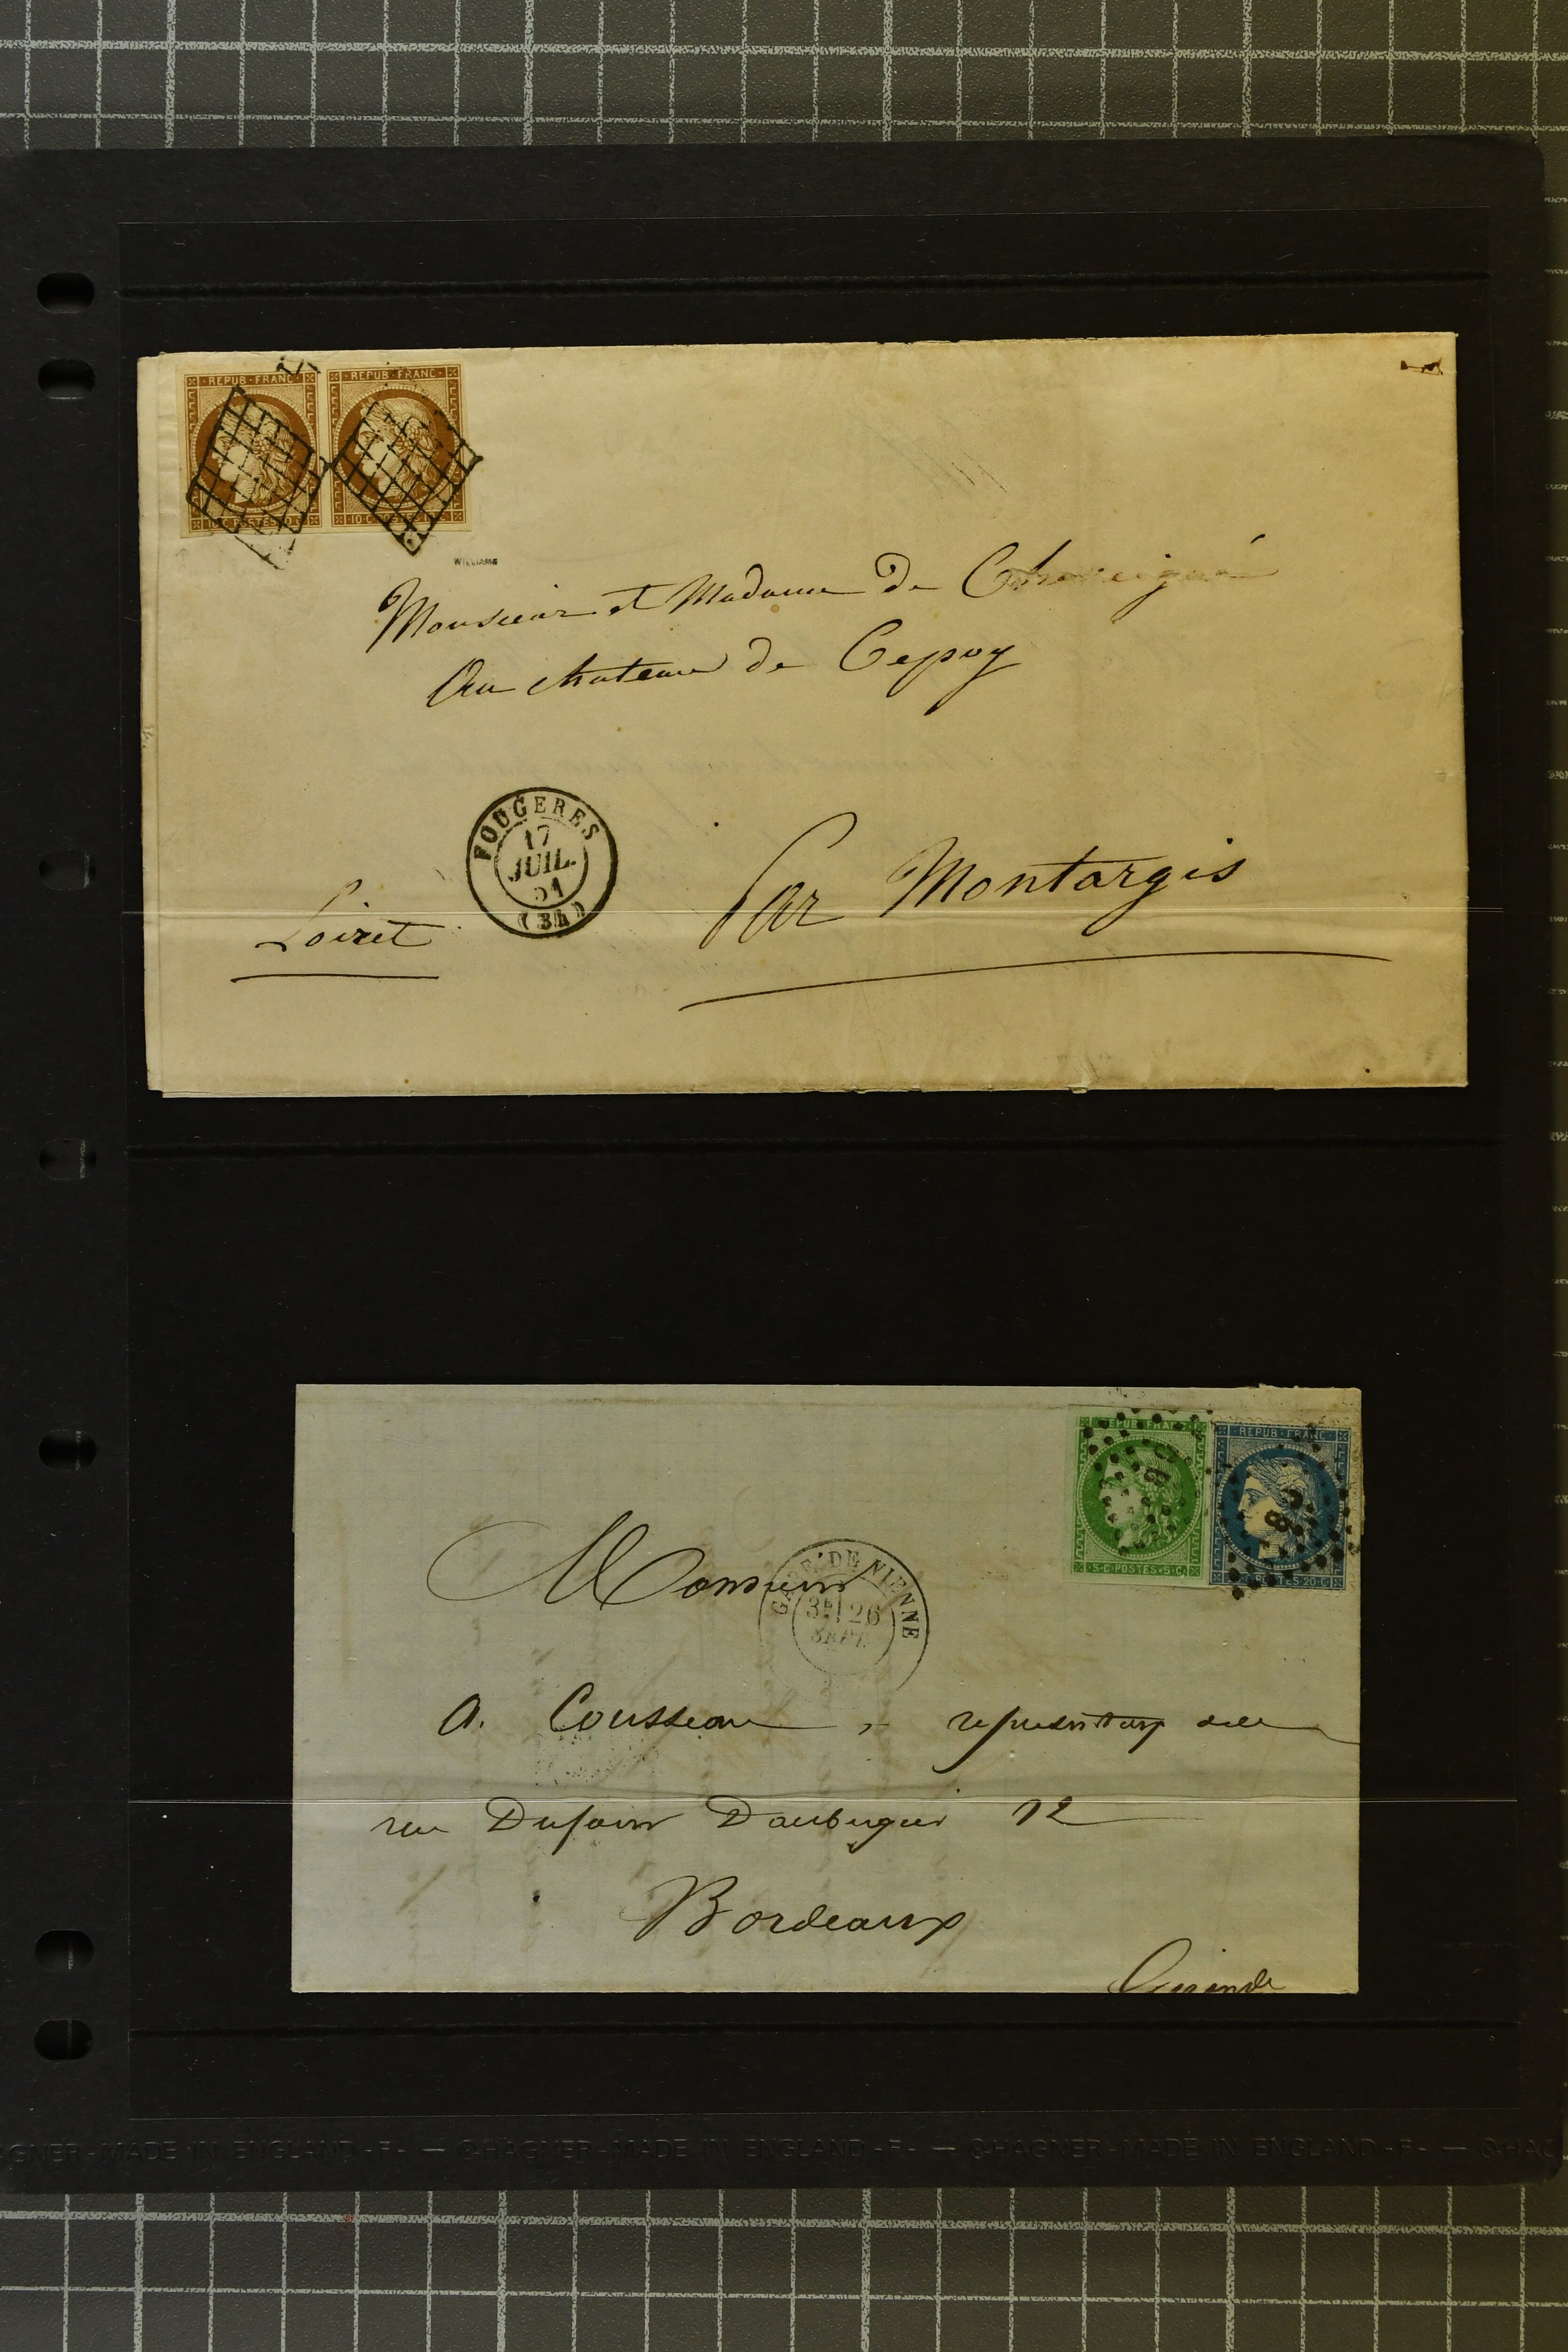 REPUB·FRANC·
REPUB·FRANC·
10·C·POSTES·10·C
10·C·POSTES·10·C
WILLIAMS
Monsieur et Madame de
Au chateau de Cepoy
FOUGERES
17
JUIL.
51
(34)
Loiret
Par Montargis
REPUB·FRANC
REPUB·FRANC·
5·C·POSTES·5·C·
POSTES·20·C
GARE DE VIENNE
3E 26
SEPT.
Monsieur
A. Cousseau,
rue 12
Bordeaux
Gironde
HAGNER-MADE IN ENGLAND-F- — ©HAGNER-MADE IN ENGLAND-F- — ©HAGNER-MADE IN ENGLAND-F- — ©HAG